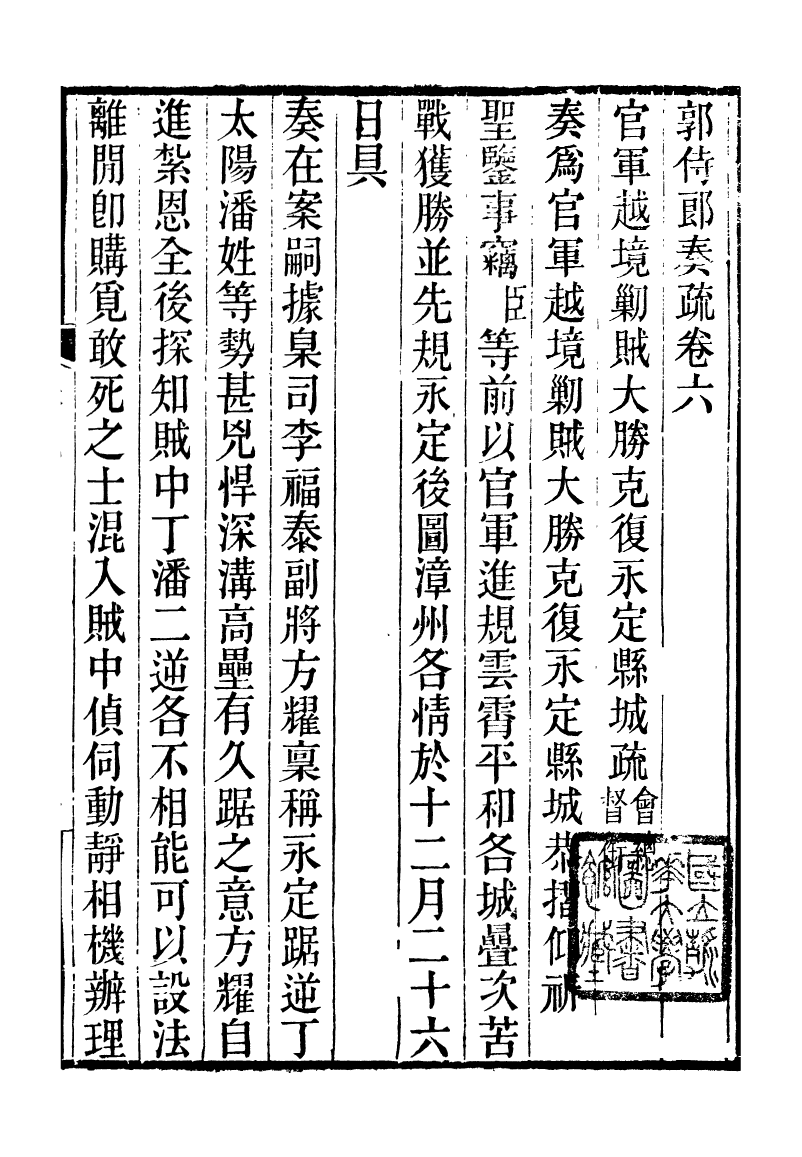 郭侍郎奏疏卷六
官軍越境剿賊大勝克復永定縣城疏會總督銜
奏爲官軍越境剿賊大勝克復永定縣城恭摺仰祈
聖鑒事竊臣等前以官軍進規雲霄平和各城疊次苦
戰獲勝並先規永定後圖漳州各情於十二月二十六
日具
奏在案嗣據臬司李福泰副將方耀稟稱永定踞逆丁
太陽潘姓等勢甚兇悍深溝高壘有久踞之意方耀自
進紮恩全後探知賊中丁潘二逆各不相能可以設法
離閒卽購覓敢死之士混入賊中偵伺動靜相機辦理
國立清華大學圖書館藏